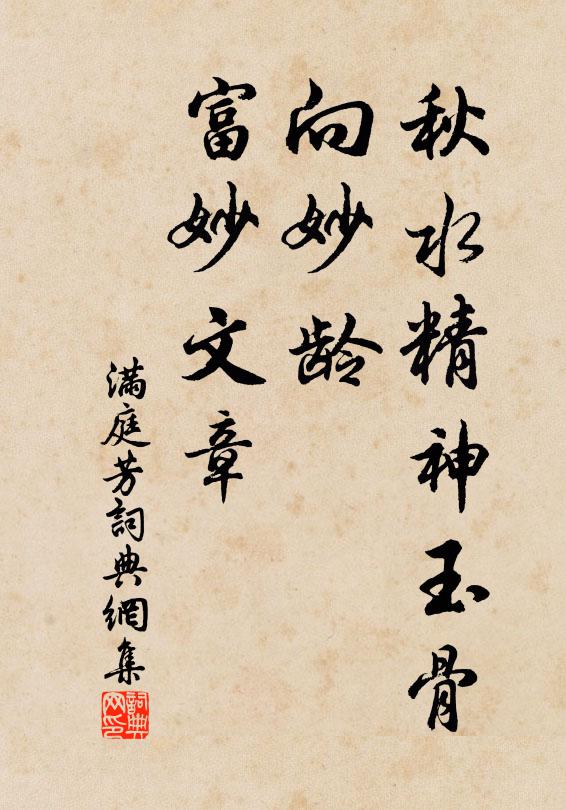 秋水精神玉骨
向妙龄
富妙文章
满庭芳詞典網集
詞典网印